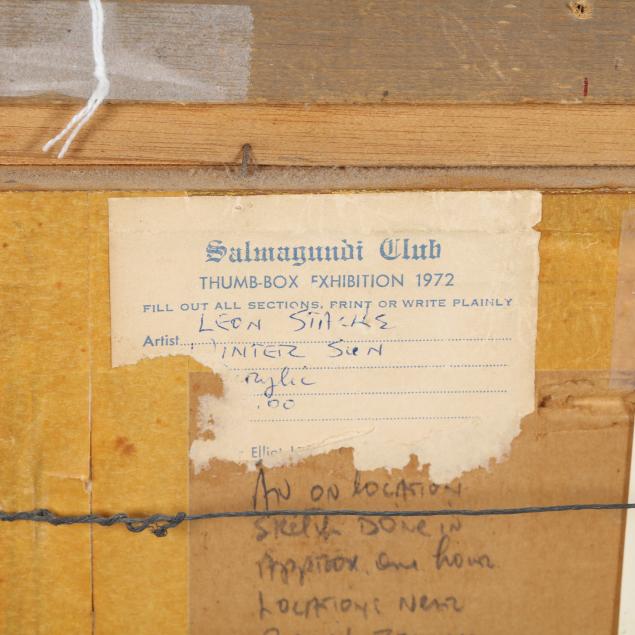 Salmagundi Club
THUMB-BOX EXHIBITION 1972
FILL OUT ALL SECTIONS, PRINT OR WRITE PLAINLY
LEON STACKS
Artist
INTER SUN
rylic
.00
Elli
AN ON LOCATION
SKETCH DONE IN
APPROX. One hour
LOCATIONS NEAR